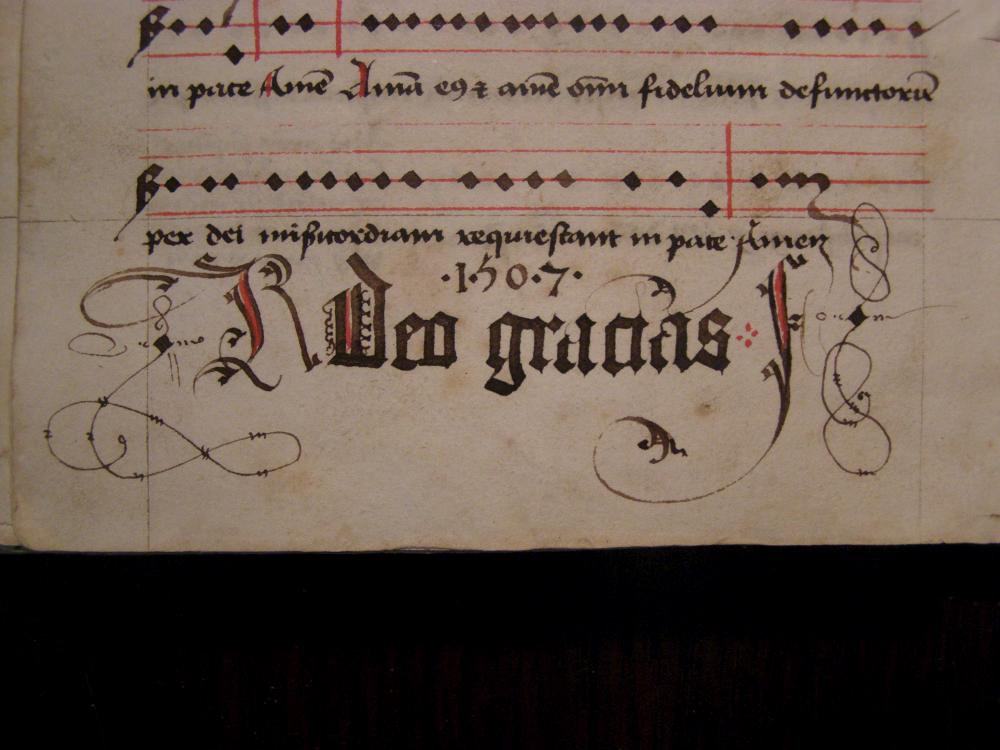 in pace Amē Aīa eꝯ ⁊ aīe oīm fidelium defunctorū
per dei mīsicordiam requiescant in pace Amen
·1·5·0·7·
R Deo gracias